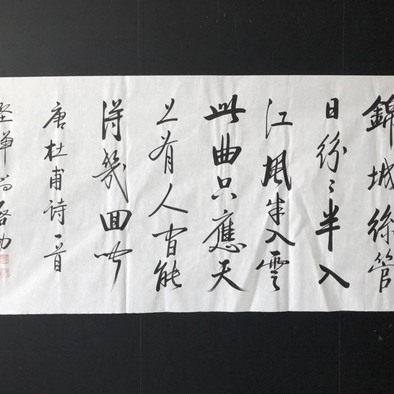 錦城絲管
日紛々半入
江風半入雲
此曲只應天
上有人間能
得幾回聞
唐杜甫詩一首
啓功